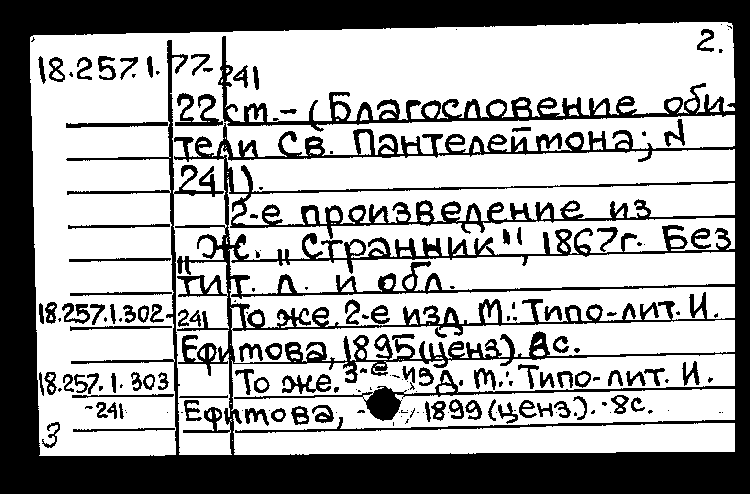 2.
18.257.1.77-241
22 ст. - (Благословение оби-
тели Св. Пантелеймона; №
241).
2-е произведение из
„Ж. „Странник“, 1867г. Без
тит. л. и обл.
18.257.1.302-241 То же. 2-е изд. М.: Типо-лит. И.
Ефимова, 1895 (ценз). 8с.
18.257.1.303 То же. 3-е изд. М.: Типо-лит. И.
-241 Ефимова, 1899 (ценз.). -8с.
3